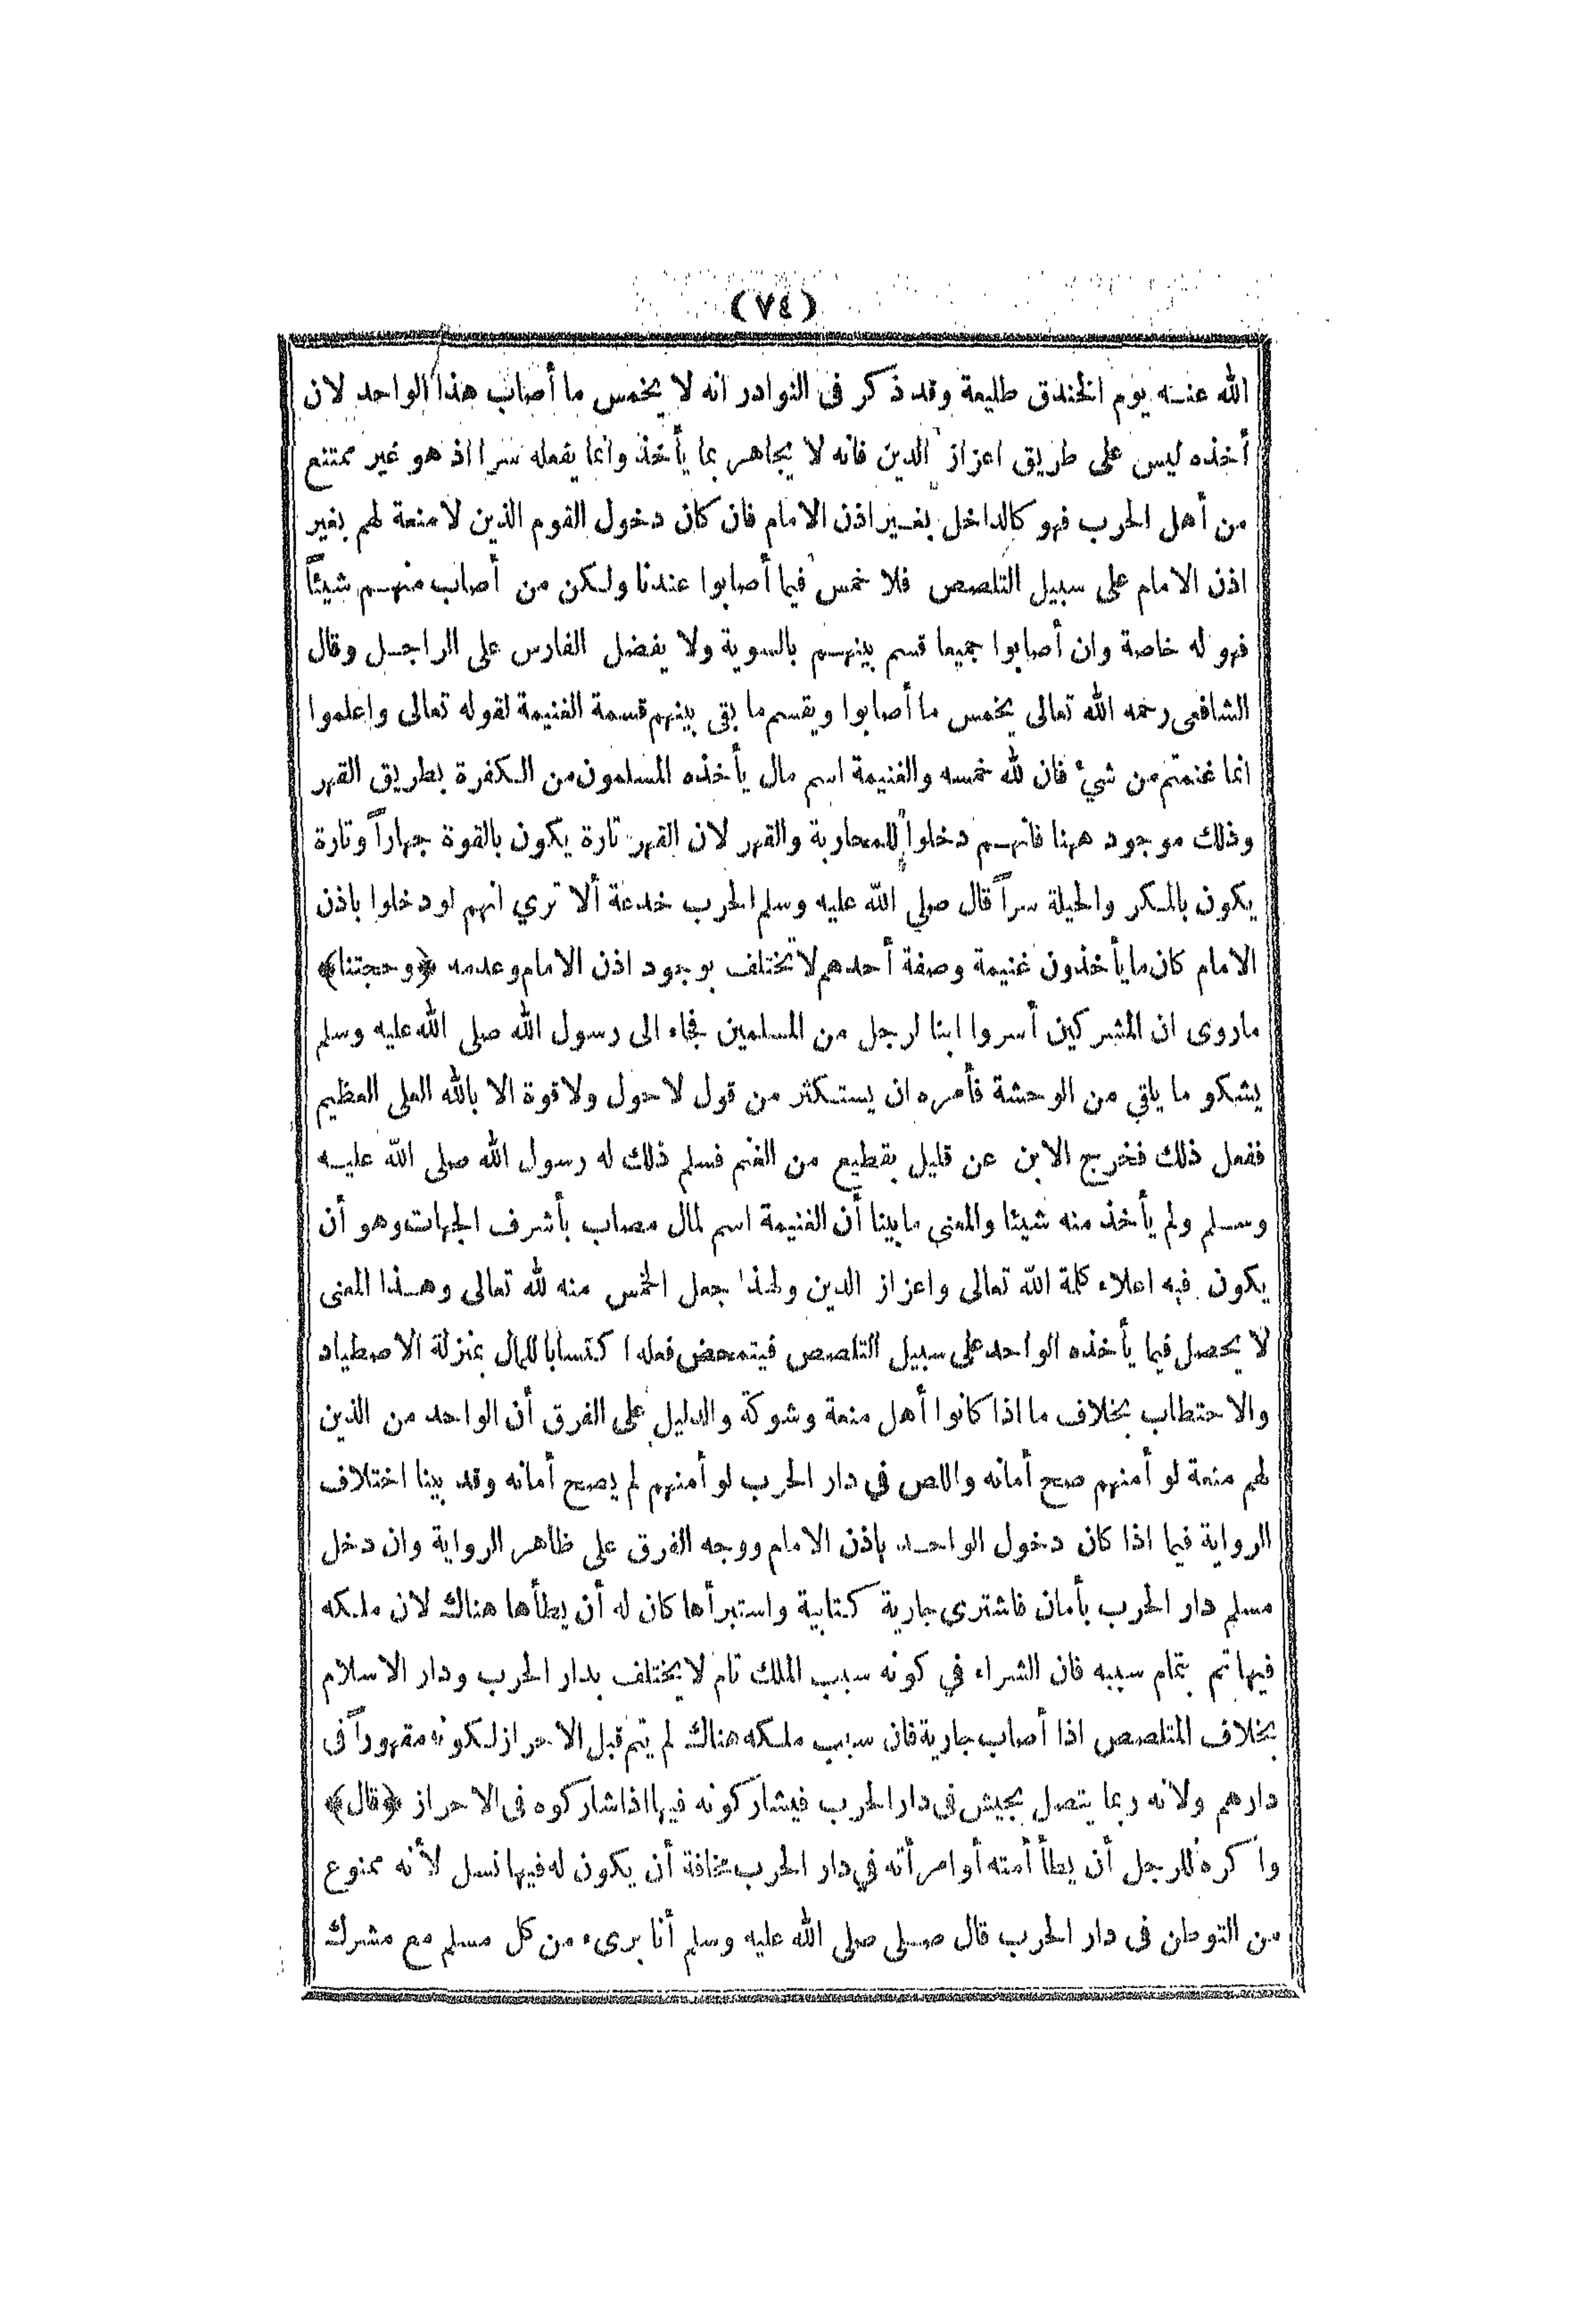 (٧٤)
الله عنه يوم الخندق طليعة وقد ذكر فى النوادر انه لا يخمس ما أصاب هذا الواحد لان
أخذه ليس على طريق اعزاز الدين فانه لا يجاهر بما يأخذ وانما يفعله سرا اذ هو غير ممتنع
من أهل الحرب فهو كالداخل بغير اذن الامام فان كان دخول القوم الذين لا منعة لهم بغير
اذن الامام على سبيل التلصص فلا خمس فيما أصابوا عندنا ولكن من أصاب منهم شيئاً
فهو له خاصة وان أصابوا جميعا قسم بينهم بالسوية ولا يفضل الفارس على الراجل وقال
الشافعى رحمه الله تعالى يخمس ما أصابوا ويقسم ما بقى بينهم قسمة الغنيمة لقوله تعالى واعلموا
انما غنمتم من شيء فان لله خمسه والغنيمة اسم مال يأخذه المسلمون من الكفرة بطريق القهر
وذلك موجود ههنا فانهم دخلوا للمحاربة والقهر لان القهر تارة يكون بالقوة جهاراً وتارة
يكون بالمكر والحيلة سراً قال صلى الله عليه وسلم الحرب خدعة ألا تري انهم لو دخلوا باذن
الامام كان ما يأخذون غنيمة وصفة أحدهم لا تختلف بوجود اذن الامام وعدمه ﴿وحجتنا﴾
ماروى ان المشركين أسروا ابنا لرجل من المسلمين فجاء الى رسول الله صلى الله عليه وسلم
يشكو ما يلقي من الوحشة فأمره ان يستكثر من قول لا حول ولا قوة الا بالله العلى العظيم
ففعل ذلك فخرج الابن عن قليل بقطيع من الغنم فسلم ذلك له رسول الله صلى الله عليه
وسلم ولم يأخذ منه شيئا والمعنى ما بينا أن الغنيمة اسم لمال مصاب بأشرف الجهات وهو أن
يكون فيه اعلاء كلمة الله تعالى واعزاز الدين ولهذا جعل الخمس منه لله تعالى وهذا المعنى
لا يحصل فيما يأخذه الواحد على سبيل التلصص فيتمحض فعله اكتسابا للمال بمنزلة الاصطياد
والاحتطاب بخلاف ما اذا كانوا أهل منعة وشوكة والدليل على الفرق أن الواحد من الذين
لهم منعة لو أمنهم صح أمانه واللص في دار الحرب لو أمنهم لم يصح أمانه وقد بينا اختلاف
الرواية فيما اذا كان دخول الواحد باذن الامام ووجه الفرق على ظاهر الرواية وان دخل
مسلم دار الحرب بأمان فاشترى جارية كتابية واستبرأها كان له أن يطأها هناك لان ملكه
فيها تم بتمام سببه فان الشراء في كونه سبب الملك تام لا يختلف بدار الحرب ودار الاسلام
بخلاف المتلصص اذا أصاب جارية فان سبب ملكه هناك لم يتم قبل الاحراز لكونه مقهوراً فى
دارهم ولانه ربما يتصل بجيش فى دار الحرب فيشاركونه فيها اذا شاركوه فى الاحراز ﴿قال﴾
واكره للرجل أن يطأ أمته أو امرأته في دار الحرب مخافة أن يكون له فيها نسل لأنه ممنوع
من التوطن فى دار الحرب قال صلى صلى الله عليه وسلم أنا بريء من كل مسلم مع مشرك